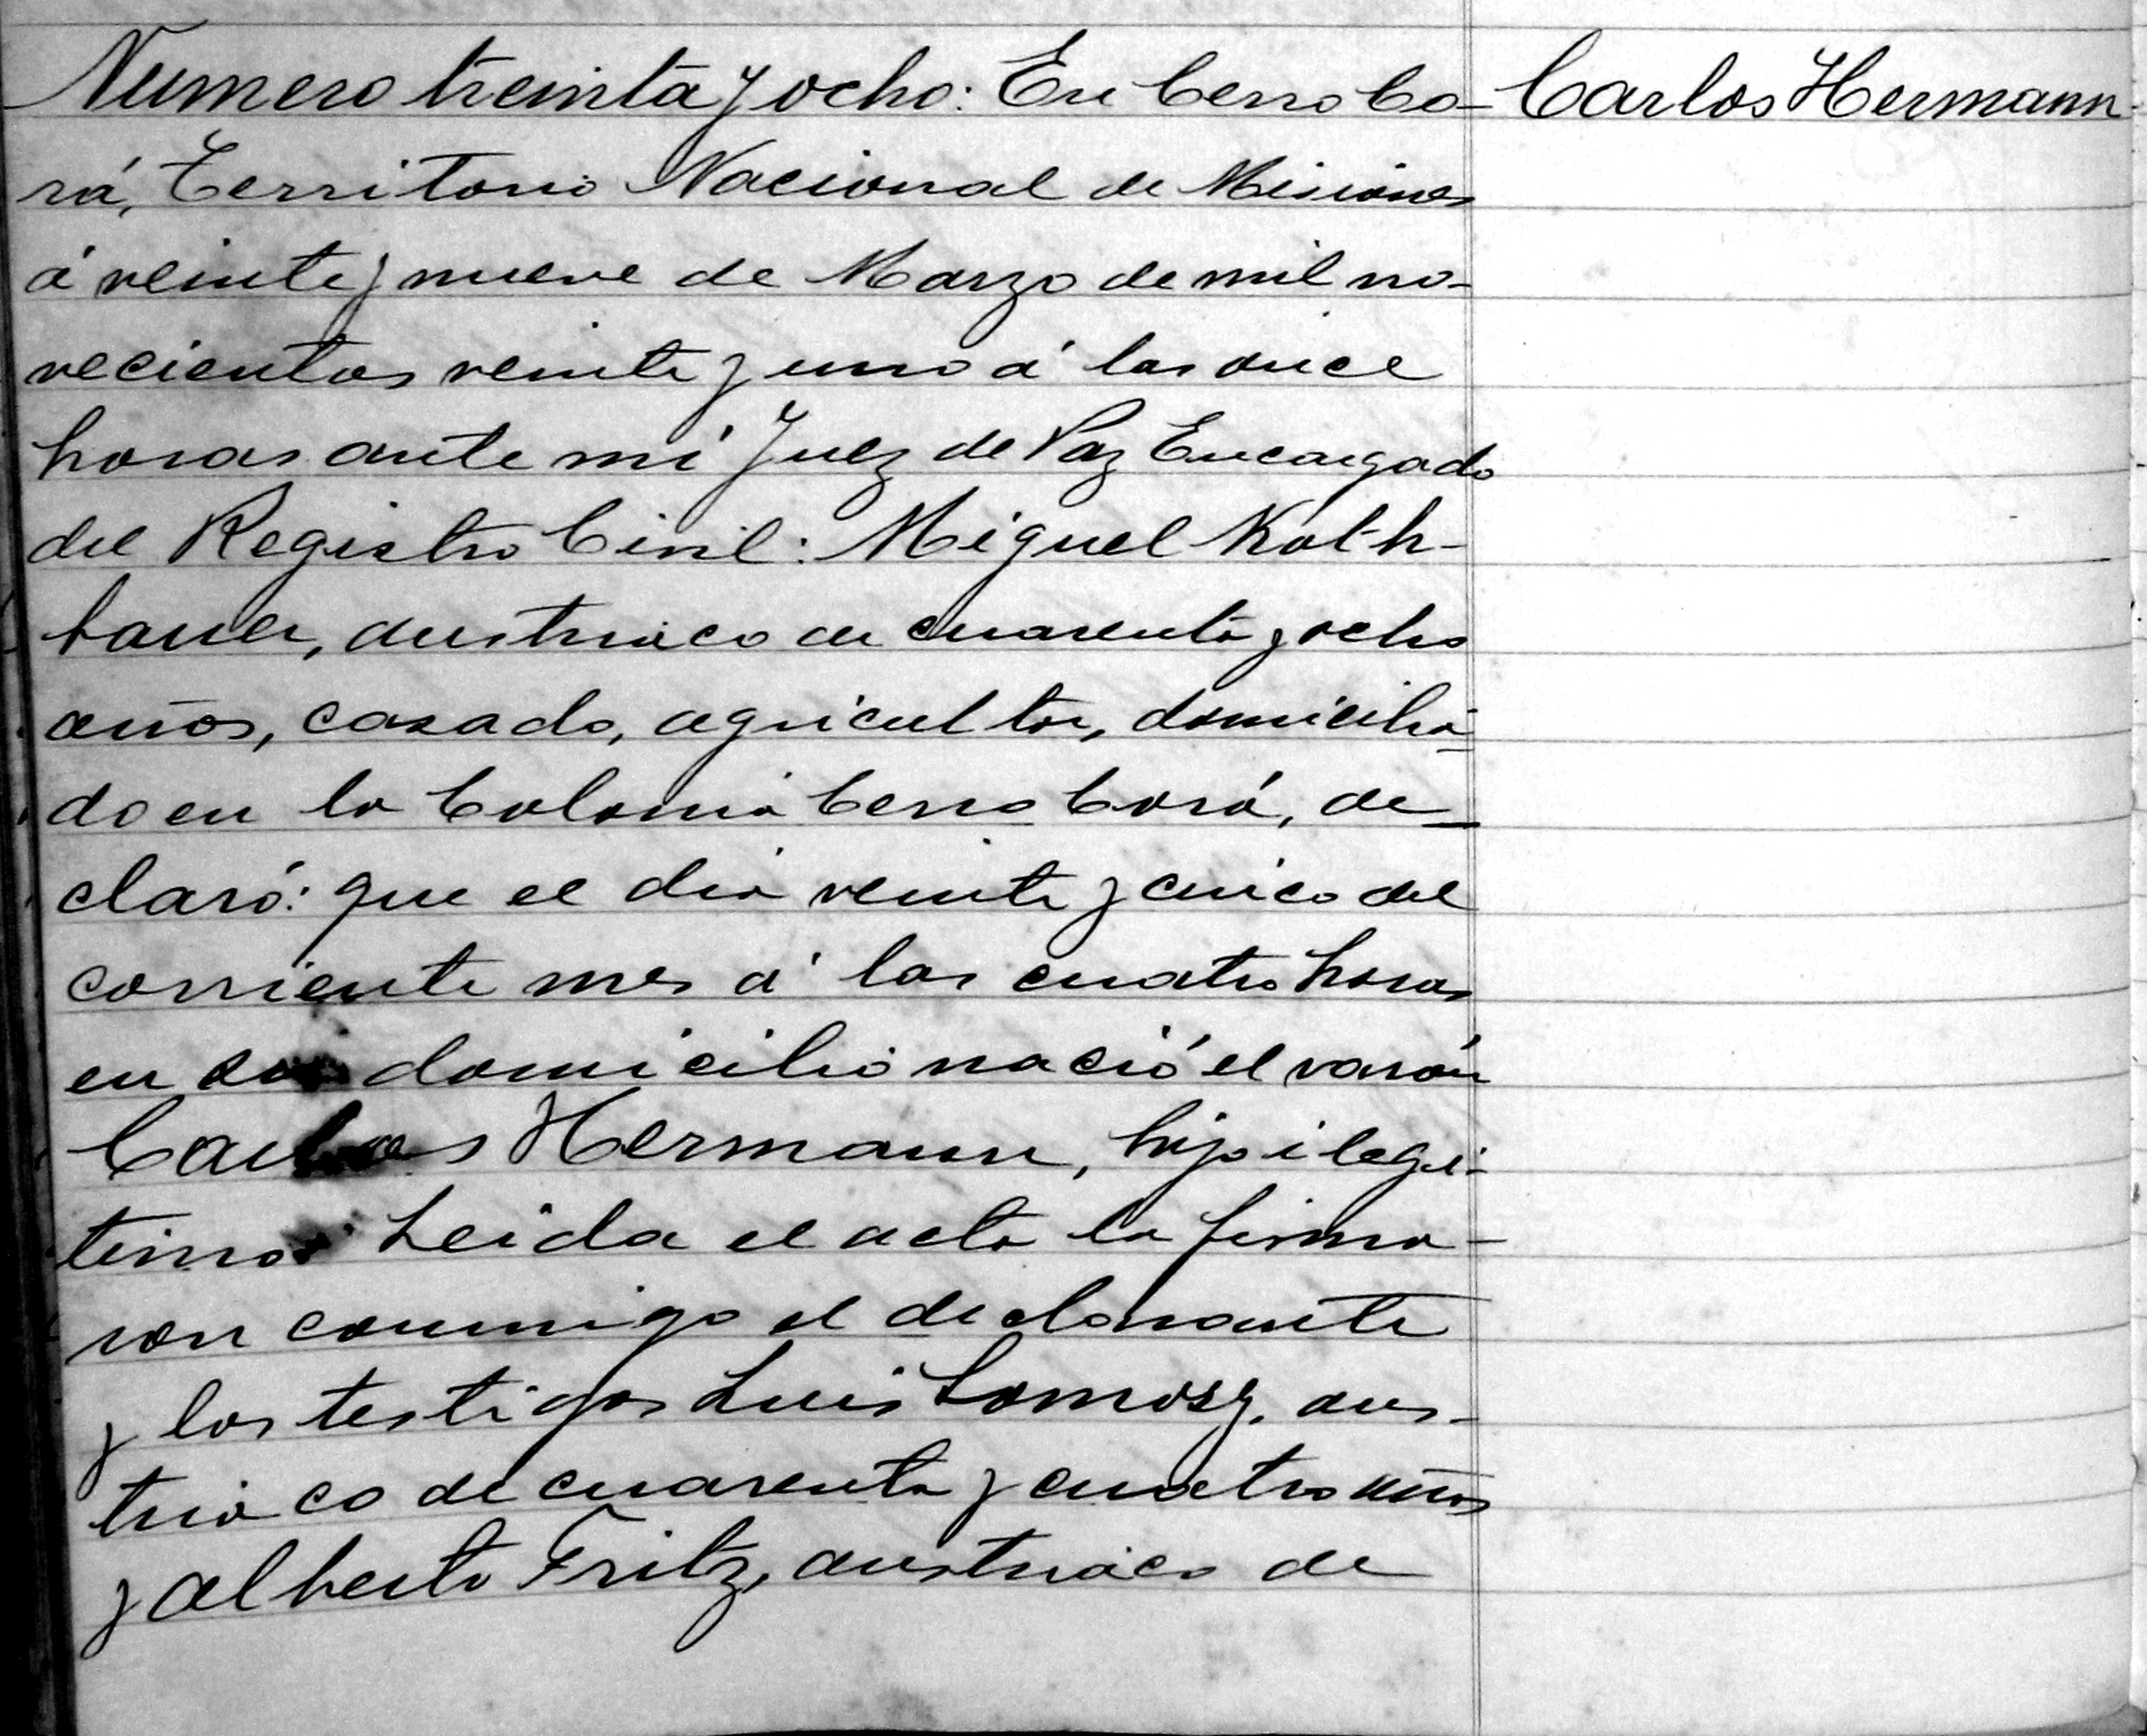 Numero treinta y ocho: En Cerro Co-
rá, Territorio Nacional de Misiones
á veinte y nueve de Marzo de mil no-
vecientos veinte y uno á las once
horas ante mi Juez de Paz Encargado
del Registro Civil: Miguel Koth-
bauer, austriaco de cuarenta y ocho
años, casado, agricultor, domicilia-
do en la Colonia Cerro Corá, de-
claró: que el dia veinte y cinco del
corriente mes á las cuatro horas
en su domicilio nació el varón
Carlos Hermann, hijo ilegi-
timo. Leida el acta la firma-
ron conmigo el declarante
y los testigos Luis Lomosz, aus-
triaco de cuarenta y cuatro años
y Alberto Fritz, austriaco de
Carlos Hermann